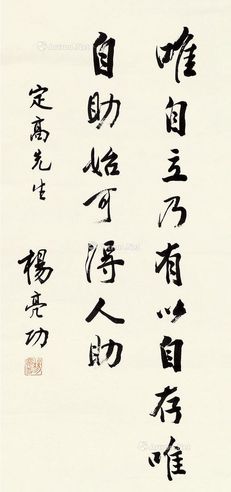 唯自立乃有以自存唯
自助始可得人助
定高先生
楊亮功